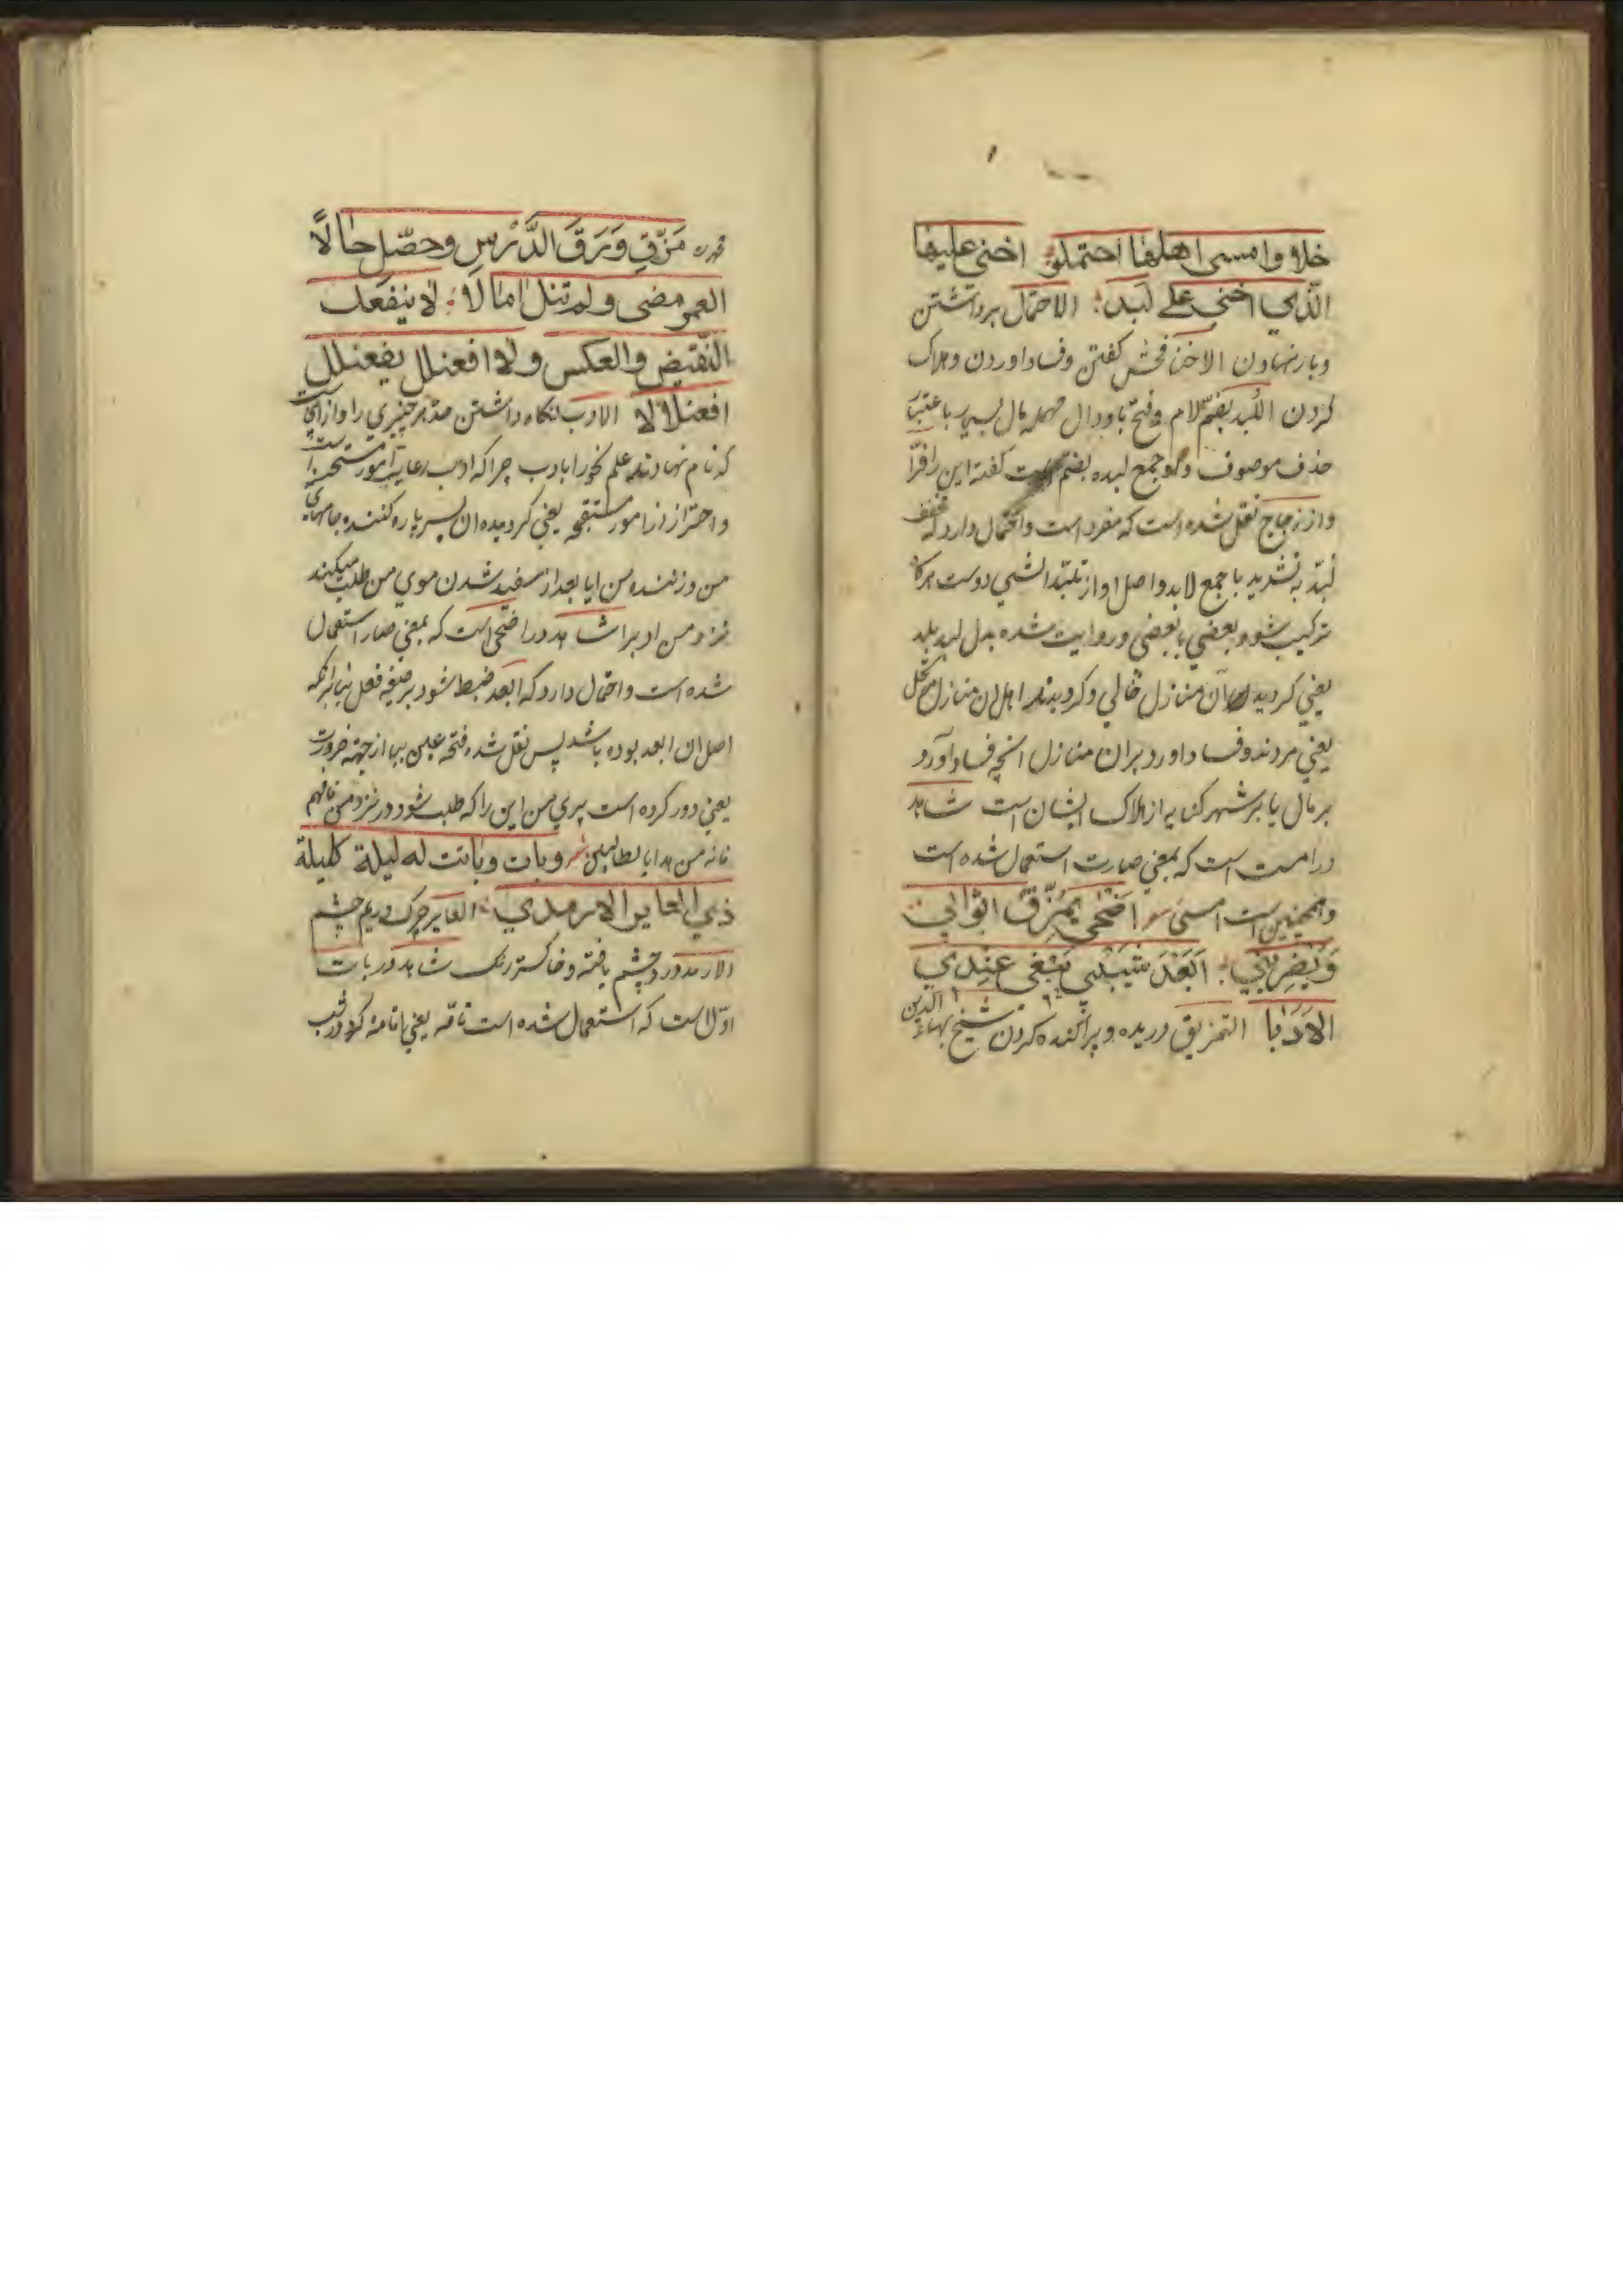 خلاو وامسی اهلها احتملو اخنی علیها
الّذی اخنی علی لبد الاحتمال برداشتن
وبار نهادن الاخنا فحش کفتن وفساد اوردن وهلاک
کردن اللبد بضمّ لام وفتح با ودال مهمله مال بسیار باعتبار
حذف موصوف و جمع لبده بضم است کفته این را فرّا
واز زجاج نقل شده است که مفرد است واحتمال دارد که مخفف
لبّد به تشدید با جمع لابد واصل او از تلبّد الشی دوست هرکاه
ترکیب شود بعضی با بعضی وروایت شده بدل لبد بلد
یعنی کردید آن منازل خالی وکردیدند اهل ان منازل متحمل
یعنی مردند وفساد اورد بران منازل انچه فساد آورد
بر مال یا بر شهر کنایه از هلاک ایشان است شاهد
در امست است که بمعنی صارت استعمال شده است
وهمچنین است امسی شعر اضحی یمزّق اثوابی
ویضربنی ابعد شیبی یبغی عندی
الادبا التمزیق دریده وپراکنده کردن شیخ بهاء الدین
فرموده مزّق ورق الدّرس وحصّل حالاً
العمر مضی ولم تنل امالا لا ینفعک
النّقیض والعکس ولا افعنلل یفعنلل
افعنلالا الادب نکاه داشتن حدّ هر چیزی را واز این است
که نام نهادند علم نحو را بادب چرا که ادب رعایة امور مستحسنه است
واحتراز از امور مستقبحه یعنی کردیده ان پسر پاره کننده جامهای
من وزننده من ایا بعد از سفید شدن موی من طلب میکند
نزد من ادب را شاهد در اضحی است که بمعنی صار استعمال
شده است واحتمال دارد که ابعد ضبط شود بر صیغه فعل بنابر انکه
اصل ان ابعد بوده باشد پس نقل شده فتحه عین بما از جهة ضرورت
یعنی دور کرده است پیری من این را که طلب شود در نزد من
شعر وبات وباتت له لیلة کلیلة
ذی العایر الارمد العایر چرک وریم چشم
الارمد درد چشم یافته وخاکستر رنک شاهد در بات
اوّل است که استعمال شده است تامّه یعنی اقامه کرد در شب